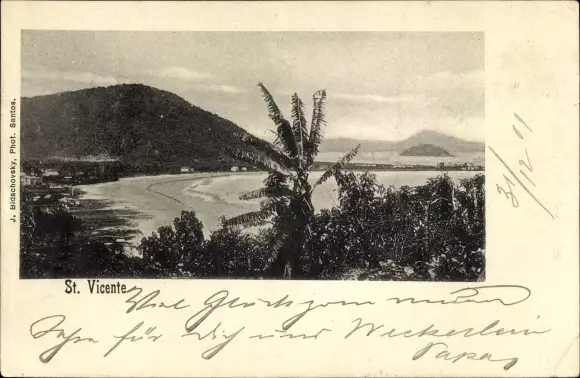 J. Bidschovsky, Phot. Santos.
St. Vicente
31/12 01
Viel Glück zum neuen
Jahr für Dich und Weckerlein
Papa